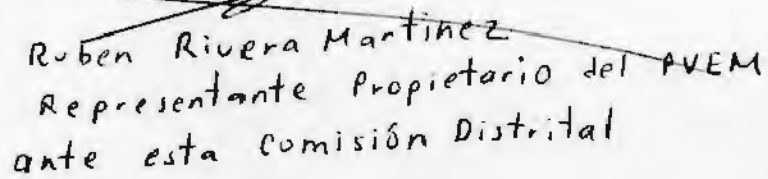 Ruben Rivera Martinez
Representante Propietario del PVEM
ante esta Comisión Distrital